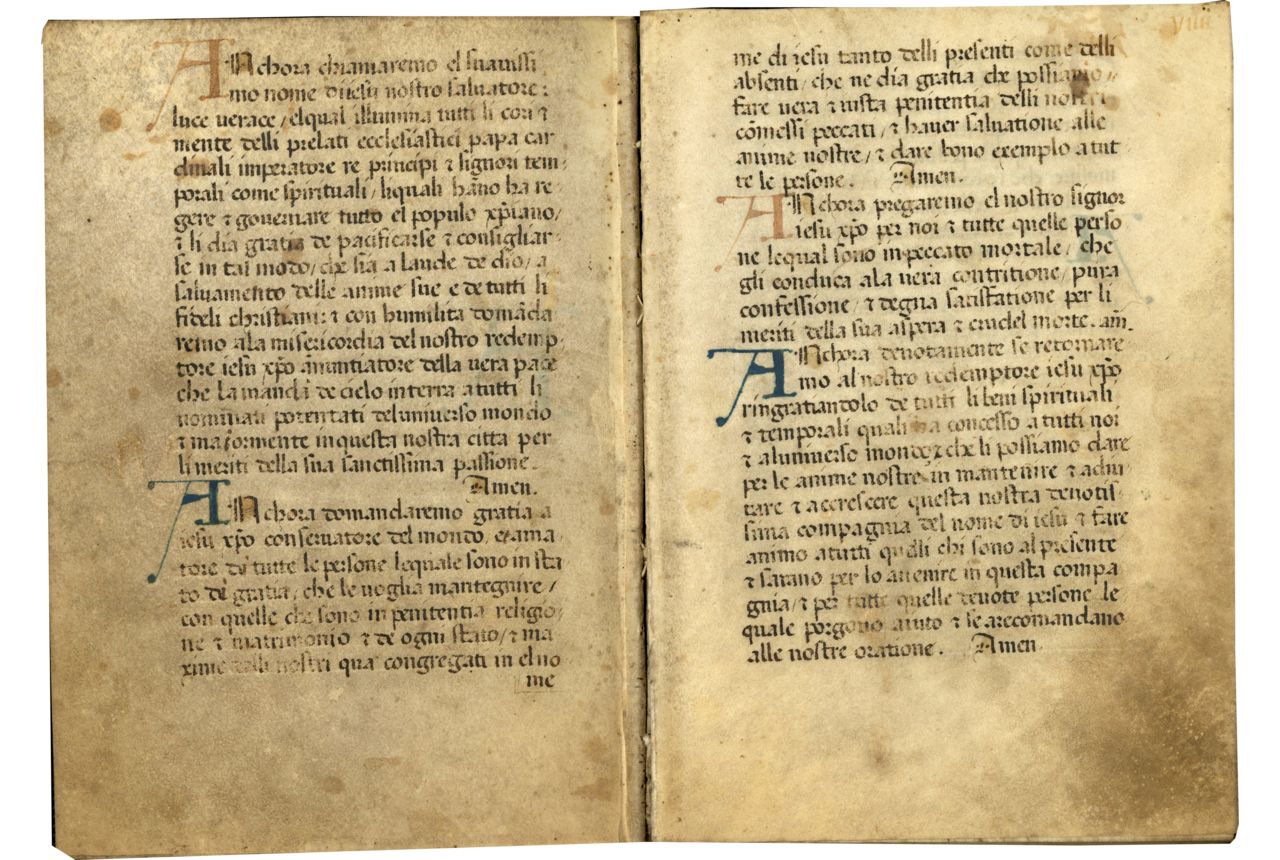 ANchora chiamaremo el suauissi
mo nome d iesu nostro saluatore:
luce verace / elqual illumina tutti li cori ⁊
mente delli prelati ecclesiastici papa car
dinali imperatore re principi ⁊ signori tem
porali come spirituali / liquali hãno ha re
gere ⁊ gouernare tutto el populo xp̃iano /
⁊ li dia gratia de pacificarse ⁊ consigliar
se in tal modo / che sia a laude de dio / a
saluamento delle anime sue e de tutti li
fideli christiani: ⁊ con humilita domãda
remo ala misericordia del nostro redemp
tore iesu xp̃o ãnuntiatore della uera pace
che la mandi de cielo interra a tutti li
nominati potentati deluniuerso mondo
⁊ maiormente inquesta nostra citta per
li meriti della sua sanctissima passione.
Amen.
ANchora domandaremo gratia a
iesu xp̃o conseruatore del mondo, ⁊ ama
tore de tutte le persone lequale sono in sta
to de gratia / che le uoglia mantegnire /
con quelle che sono in penitentia religio
ne ⁊ matrimonio ⁊ de ogni stato / ⁊ ma
xime delli nostri qua congregati in el no
me
viiii
me di iesu tanto delli presenti come delli
absenti / che ne dia gratia che possiamo
fare uera ⁊ iusta penitentia delli nostri
cõmessi peccati / ⁊ hauer saluatione alle
anime nostre / ⁊ dare bono exemplo a tut
te le persone. Amen.
ANchora pregaremo el nostro signor
iesu xp̃o per noi ⁊ tutte quelle perso
ne lequal sono in peccato mortale / che
gli conduca ala uera contritione / pura
confessione / ⁊ degna satisfatione per li
meriti della sua aspera ⁊ crudel morte. am̃.
ANchora deuotamente se retornare
mo al nostro redemptore iesu xp̃o
ringratiandolo de tutti li beni spirituali
⁊ temporali quali ha concesso a tutti noi
⁊ aluniuerso mondo ⁊ che li possiamo dare
per le anime nostre in mantenire ⁊ adiu
tare ⁊ accrescere questa nostra deuotis
sima compagnia del nome di iesu ⁊ fare
animo a tutti quelli chi sono al presente
⁊ sarano per lo auenire in questa compa
gnia / ⁊ per tutte quelle deuote persone le
quale porgono aiuto ⁊ se arecomandano
alle nostre oratione. Amen.